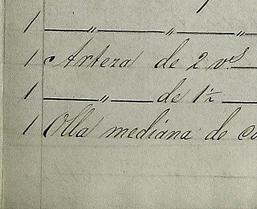 1 — „ — „ — „
1 Arteza de 2 v.s
1 — „ — de 1½
1 Olla mediana de co